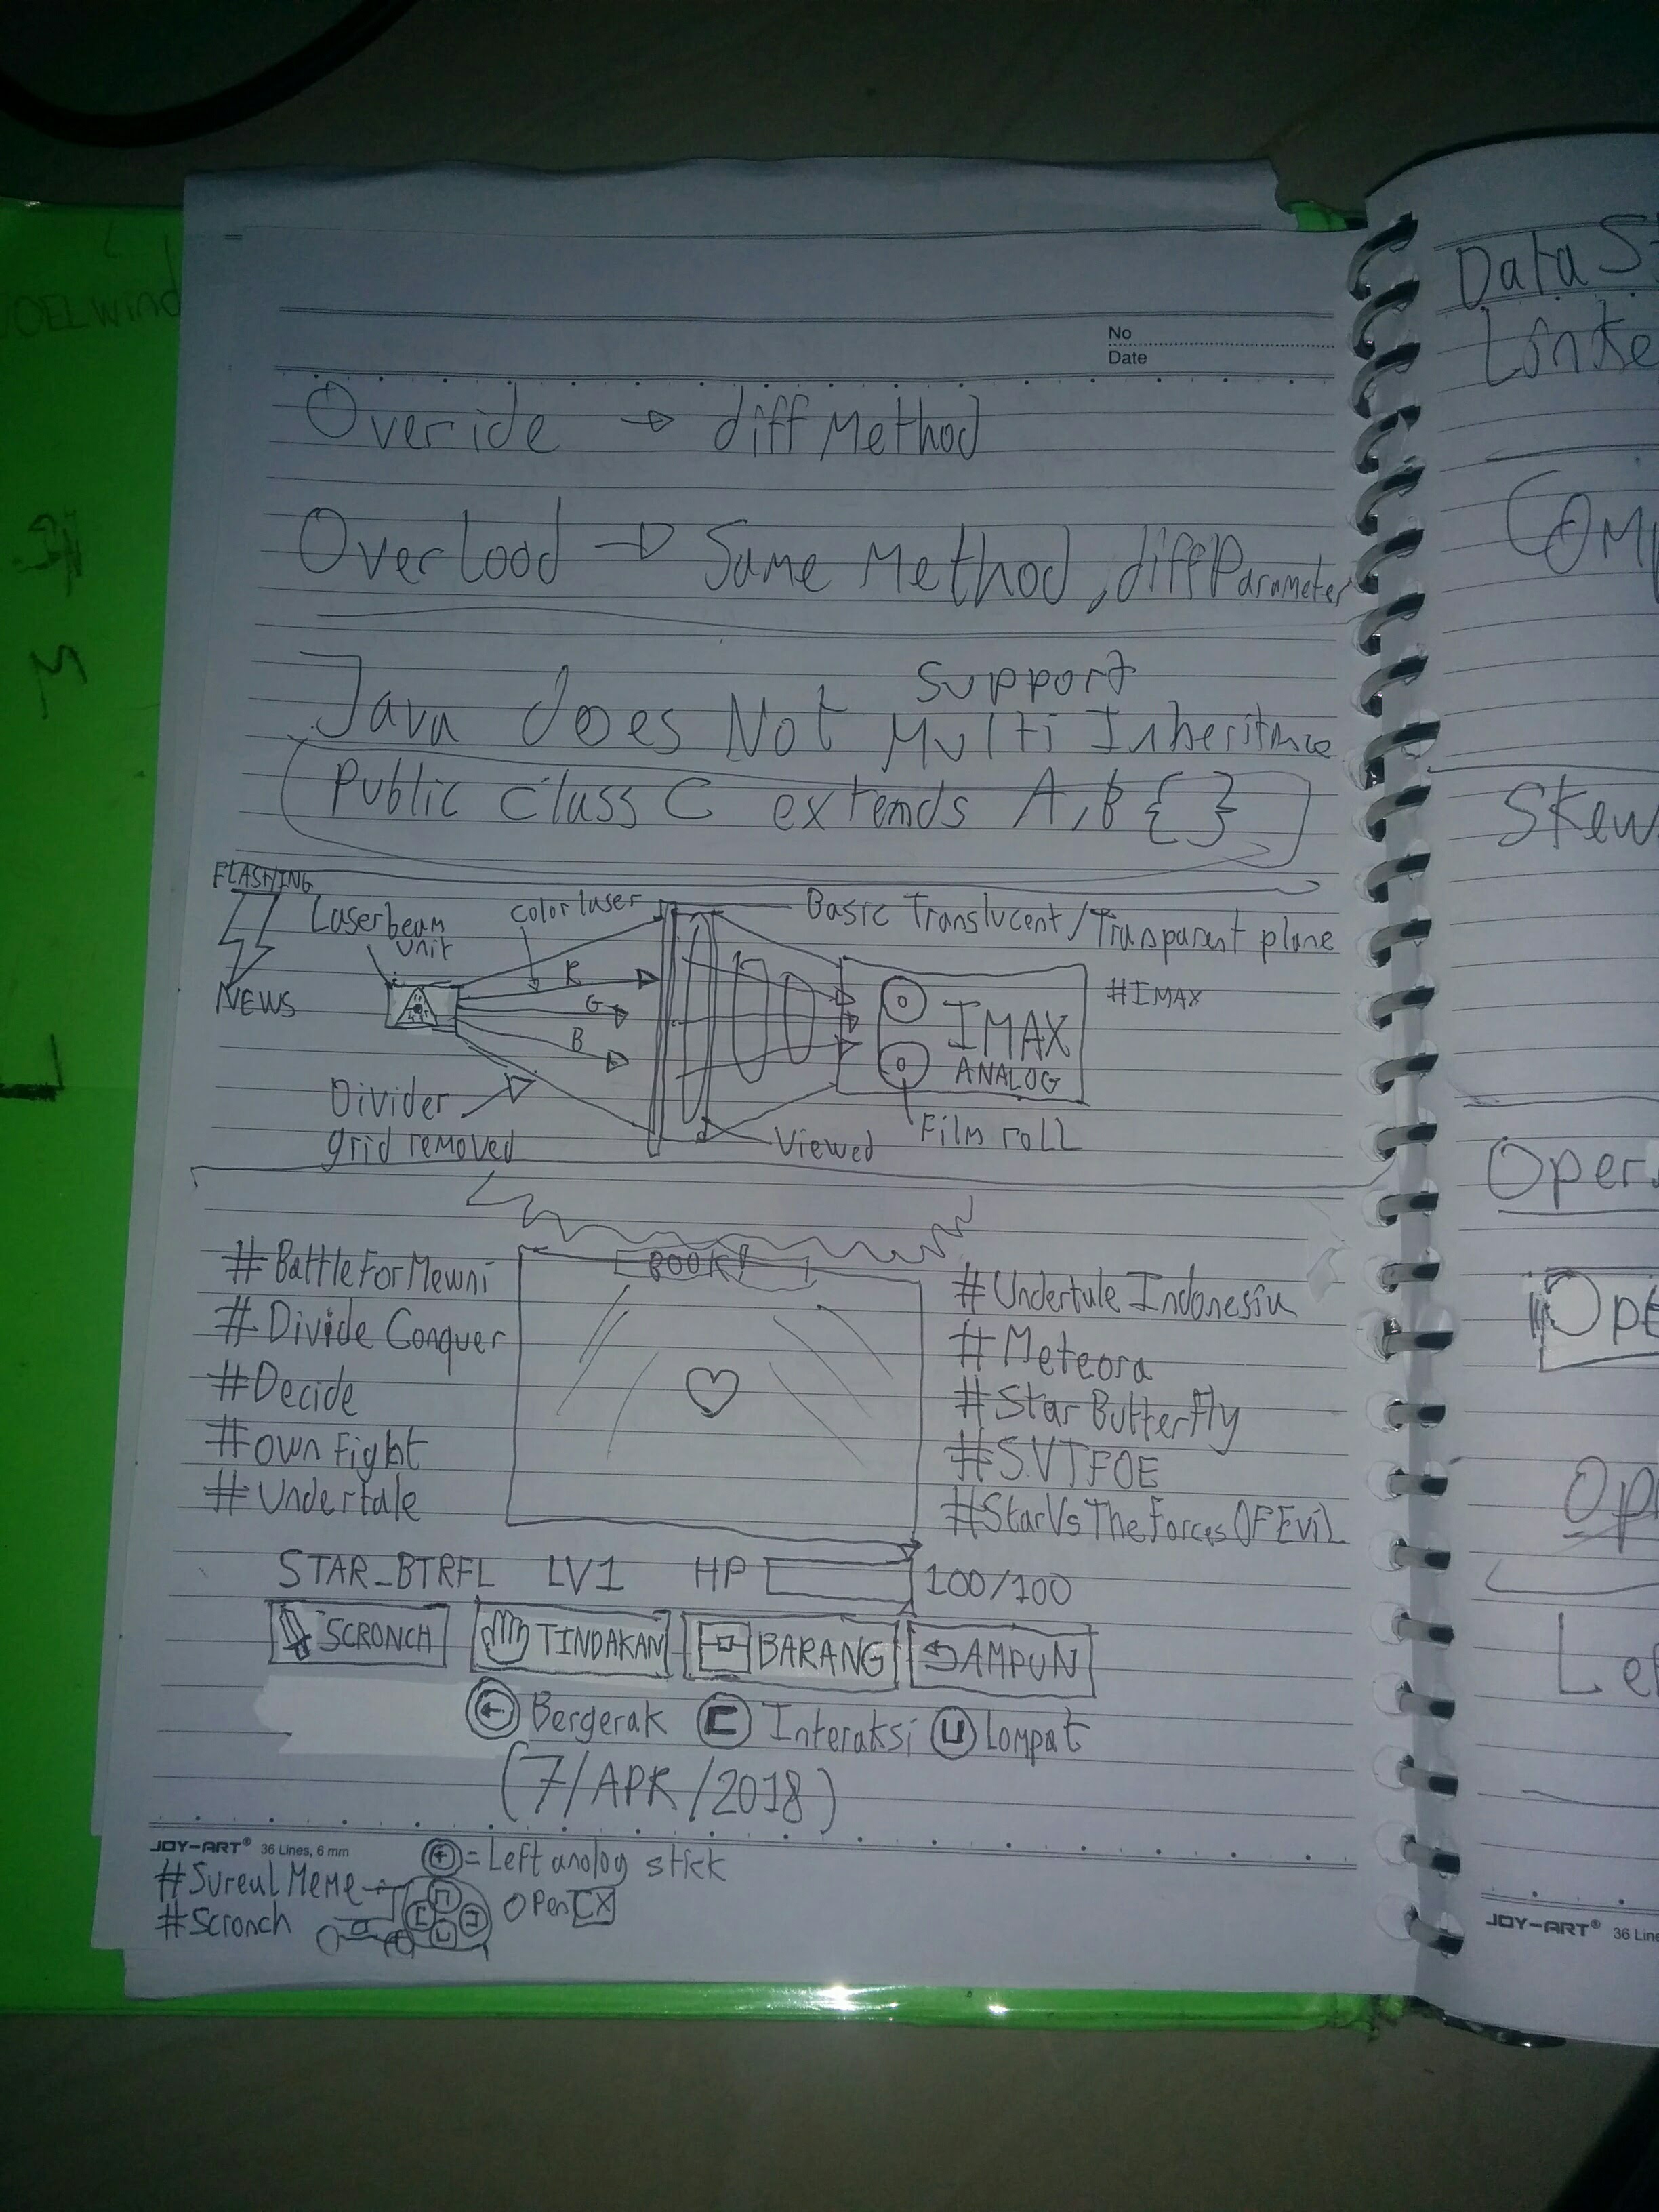 No
Date
Overide → diff Method
Overload → Same Method, diff Parameter
Java does Not support Multi Inheritance
Public class C extends A, B { }
FLASHING
NEWS
Laserbeam unit
color laser
Basic Translucent/Transparent plane
R
G
B
#IMAX
IMAX
ANALOG
Divider
grid removed
Viewed
Film roll
#BattleForMewni
#Divide Conquer
#Decide
#own Fight
#Undertale
#Undertale Indonesia
#Meteora
#Star Butterfly
#SVTFOE
#StarVsTheForcesOFEvil
STAR_BTRFL LV1 HP 100/100
SCRONCH TINDAKAN BARANG AMPUN
Bergerak Interaksi Lompat
(7/APR/2018)
JOY-ART® 36 Lines, 6 mm
= Left analog stick
#Sureal Meme
#Scronch
Open CX
Data
Skew
JOY-ART® 36